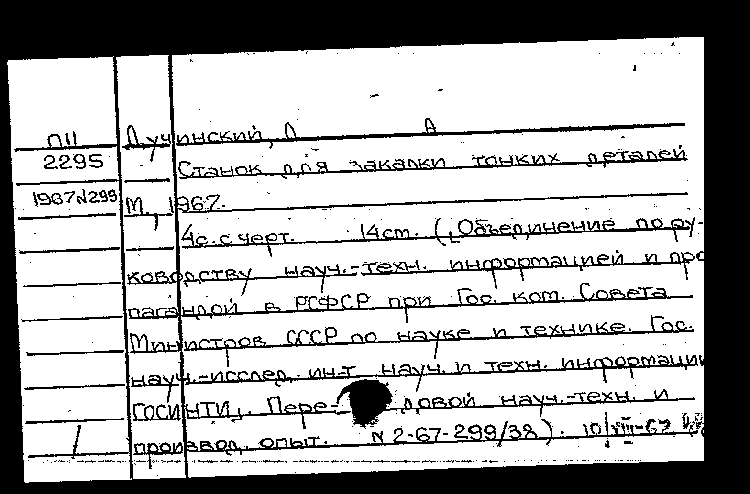 П11 Лучинский, Л А
2295 Станок для закалки тонких деталей
1967№299 М., 1967.
4с. с черт. 14см. (Объединение по ру-
ководству науч.-техн. информацией и про
пагандой в РСФСР при Гос. ком. Совета
Министров СССР по науке и технике. Гос.
науч.-исслед. ин-т науч. и техн. информации
ГОСИНТИ. Пере- довой науч.-техн. и
производ. опыт. N 2-67-299/38). 10/VIII-67